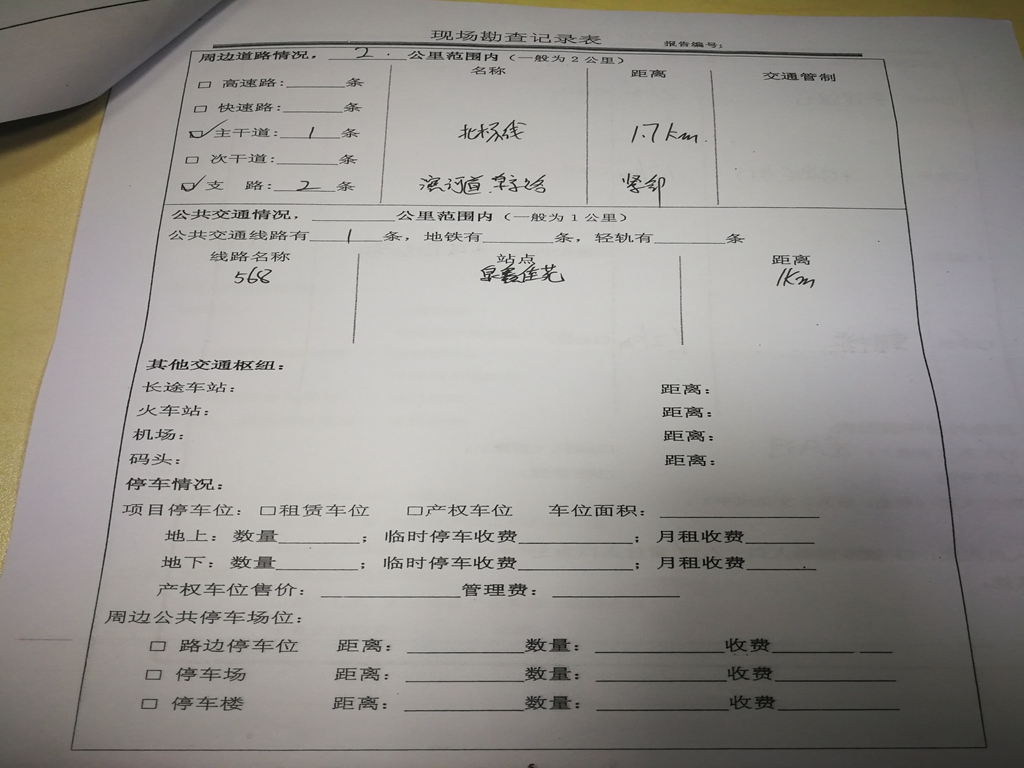 现场勘查记录表
报告编号:
周边道路情况，2.公里范围内（一般为2公里）
名称 距离 交通管制
□ 高速路:______条
□ 快速路:______条
☑ 主干道:__1__条 北杨线 1.7km.
□ 次干道:______条
☑ 支 路:__2__条 滨河道 紧邻
公共交通情况，________公里范围内（一般为1公里）
公共交通线路有__1__条，地铁有______条，轻轨有______条
线路名称 站点 距离
568 1km
其他交通枢纽：
长途车站： 距离：
火车站： 距离：
机场： 距离：
码头： 距离：
停车情况：
项目停车位：□租赁车位 □产权车位 车位面积：______________
地上：数量________；临时停车收费___________；月租收费_______
地下：数量________；临时停车收费___________；月租收费_______
产权车位售价：_____________管理费：____________
周边公共停车场位：
□ 路边停车位 距离：___________数量：____________收费___________
□ 停车场 距离：___________数量：____________收费___________
□ 停车楼 距离：___________数量：____________收费___________